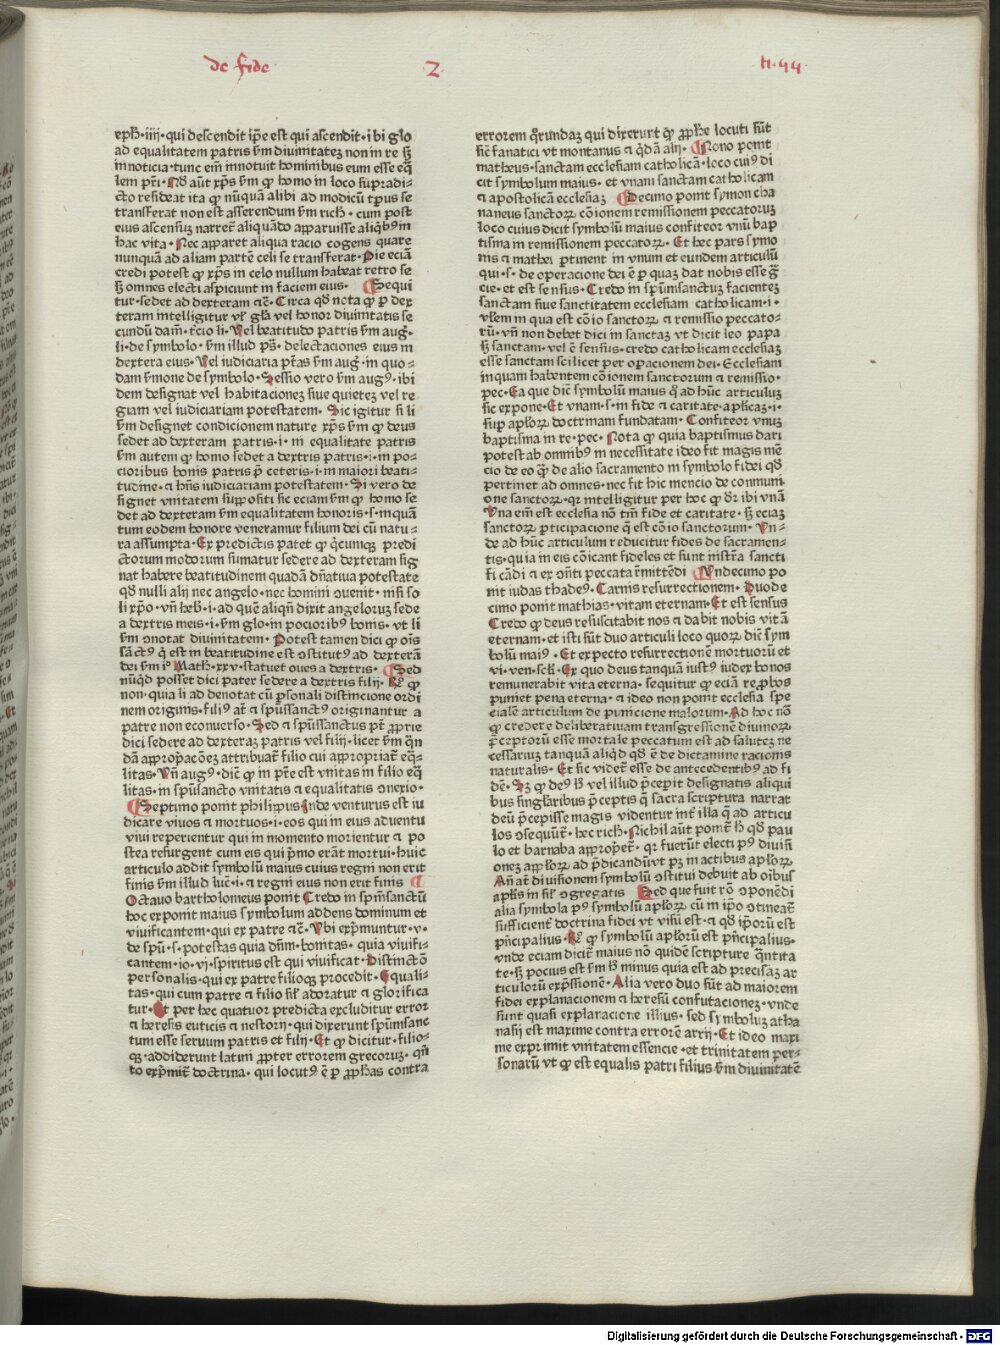 de fide 2 n·44
eph̄·iiij·qui descendit ip̄e est qui ascendit·i ibi glo
ad equalitatem patris ẜm diuinitateʒ non in re sʒ
in noticia·tunc em̄ innotuit hominibus eum esse eq̄
lem pr̄i·Nō aūt xp̄s ẜm ꝙ homo in loco supradi-
cto resideat ita ꝙ nūquā alibi ad modicū tp̄us se
transferat non est asserendum ẜm rich̄·cum post
eius ascensuʒ narret̄ aliquādo apparuisse aliqb9 in
hac vita·Nec apparet aliqua racio cogens quare
nunquā ad aliam partē celi se transferat·Pie eciā
credi potest ꝙ xp̄s in celo nullum habeat retro se
sʒ omnes electi aspiciunt in faciem eius· Sequi
tur·sedet ad dexteram ⁊cē·Circa qd̄ nota ꝙ p dex
teram intelligitur vl̄ glā vel honor diuinitatis se
cundū dam̄·t̄cio li·Vel beatitudo patris ẜm aug·
li·de symbolo·ẜm illud ps̄·delectaciones eius in
dextera eius·Vel iudiciaria pt̄as ẜm aug̉·in quo-
dam ẜmone de symbolo·Sessio vero ẜm aug9·ibi
dem designat vel habitacioneʒ siue quieteʒ vel re
giam vel iudiciariam potestatem·Sic igitur si li
ẜm designet condicionem nature xp̄s ẜm ꝙ deus
sedet ad dexteram patris·i·in equalitate patris
ẜm autem ꝙ homo sedet a dextris patris·i·in po-
cioribus bonis patris p̄ ceteris·i·in maiori beati-
tudine·⁊ hn̄s iudiciariam potestatem·Si vero de
signet vnitatem suppositi sic eciam ẜm ꝙ homo se
det ad dexteram ẜm equalitatem honoris·s·inquā
tum eodem honore veneramur filium dei cū natu-
ra assumpta·Ex predictis patet ꝙ q̄cumqʒ predi
ctorum modorum sumatur sedere ad dexteram sig
nat habere beatitudinem quadā dn̄atiua potestate
qd̄ nulli alij nec angelo·nec homini ↄuenit·nisi so
li xp̄o·vn̄ heb̄·i·ad quē aliqn̄ dixit angeloruʒ sede
a dextris meis·i·ẜm glo·in pocioribꝰ bonis·vt li
ẜm ↄnotat diuinitatem·Potest tamen dici ꝙ oīs
sāct9 q̄ est in beatitudine est ↄstitut9 ad dexterā
dei ẜm i° Math̄·xxv·statuet oues a dextris· Sed
nūqd̄ posset dici pater sedere a dextris filij·R̄ ꝙ
non·quia li ad denotat cū p̄sonali distinctione ordi
nem originis·fili9 at̄ ⁊ spūssanct9 originantur a
patre non econuerso·Sed ⁊ spūssanctus pt̄ ꝓprie
dici sedere ad dexteraʒ patris vel filij·licet ẜm q̄n
dā appropacōeʒ attribuat̄ filio cui appropriat̄ eq̄-
litas·Vn̄ aug9·dic̄ ꝙ in pr̄e est vnitas in filio eq̄
litas·in spūsancto vnitatis ⁊ equalitatis ↄnexio·
Septimo ponit philippus·Inde venturus est iu
dicare viuos ⁊ mortuos·i·eos qui in eius aduentu
viui reperientur qui in momento morientur ⁊ po
stea resurgent cum eis qui p̄mo erāt mortui·huic
articulo addit symbolū maius cuius regni non erit
finis ẜm illud luc̄·i·⁊ regni eius non erit finis
Octauo bartholomeus ponit Credo in spm̄sanctū
hoc exponit maius symbolum addens dominum et
viuificantem·qui ex patre ⁊cē·Vbi exp̄muntur·v·
de spū·s·potestas quia dn̄m·bonitas·quia viuifi-
cantem·io·vj·spiritus est qui viuificat·Distinctō
personalis·qui ex patre filioqʒ procedit·Equali-
tas·qui cum patre ⁊ filio sil̄ adoratur ⁊ glorifica
tur·Et per hec quatuor predicta excluditur error
⁊ heresis euticis ⁊ nestorij·qui dixerunt spūmsanc
tum esse seruum patris et filij·Et ꝙ dicitur·filio-
qʒ·addiderunt latini ꝓpter errorem grecoruʒ·qn̄
to exp̄mit̄ doctrina·qui locut9 ē p ꝓphās contra
errorem q̄rundaʒ qui dixerunt ꝙ ꝓphe locuti sūt
sic̄ fanatici vt montanus ⁊ q̄dā alij· Nono ponit
matheus·sanctam ecclesiam catholicā·loco cui9 di
cit symbolum maius·et vnam sanctam catholicam
⁊ apostolicam ecclesiaʒ Decimo ponit symon cha
naneus sanctoꝝ cōionem remissionem peccatoruʒ
loco cuius dicit symbolū maius confiteor vnū bap
tisma in remissionem peccatoꝝ·Et hec pars symo
nis ⁊ mathei pertinent in vnum et eundem articulū
qui·s·de operacione dei ē p quaʒ dat nobis esse gr̄
cie·et est sensus·Credo in spūmsanctuʒ facienteʒ
sanctam siue sanctitatem ecclesiam catholicam·i·
vl̄em in qua est cōio sanctoꝝ ⁊ remissio peccato-
rū·vn̄ non debet dici in sanctaʒ vt dicit leo papa
sʒ sanctam·vel ē sensus·credo catholicam ecclesiaʒ
esse sanctam scilicet per operacionem dei·Ecclesiam
inquam habentem cōionem sanctorum ⁊ remissio·
pec·Ea que dic̄ symbolū maius q̄ ad hūc articuluʒ
sic expone·Et vnam·s·in fide ⁊ caritate·aplicaʒ·i·
sup aploꝝ doctrinam fundatam·Confiteor vnuʒ
baptisma in re·pec·Nota ꝙ quia baptismus dari
potest ab omnib9 in necessitate ideo fit magis mē
cio de eo q̄ de alio sacramento in symbolo fidei qd̄
pertinet ad omnes·nec fit hic mencio de communi
one sanctoꝝ·qr intelligitur per hoc ꝙ dr̄ ibi vnā
Vna em̄ est ecclesia nō tm̄ fide et caritate·sʒ eciaʒ
sanctoꝝ p̄ticipacione q̄ est cōio sanctorum·Vn-
de ad hūc articulum reducitur fides de sacramen-
tis·quia in eis cōicant fideles et sunt instr̄a sancti
ficādi ⁊ ex ↄn̄ti peccata r̄mittēdi Vndecimo po
nit iudas thade9·Carnis resurrectionem·Duode
cimo ponit mathias·vitam eternam·Et est sensus
Credo ꝙ deus resuscitabit nos ⁊ dabit nobis vitā
eternam·et isti sūt duo articuli loco quoꝝ dic̄ sym
bolū mai9·Et expecto resurrectionē mortuorū et
vi·ven·scl̄i·Ex quo deus tanquā iust9 iudex bonos
remunerabit vita eterna·sequitur ꝙ eciā rep̄bos
puniet pena eterna·⁊ ideo non ponit ecclesia spe
cialē articulum de punicione malorum·Ad hoc nō
ꝙ credere deliberatiuam transgressionē diuinoꝝ
p̄ceptorū esse mortale peccatum est ad saluteʒ ne
cessariuʒ tanquā aliqd qd̄ ē de dictamine racionis
naturalis·Et sic videt̄ esse de antecedentib9 ad fi
dē·Sʒ ꝙ de9 hͦ vel illud p̄cepit designatis aliqui
bus singularibus p̄ceptis q̄ sacra scriptura narrat
deū p̄cepisse magis videntur int̄ illa q̄ ad articu
los ↄsequūt̄·hec rich̄·Nichil aūt ponit̄ hͦ qd̄ pau
lo et barnaba appropet̄·qr fuerūt electi p9 diuisi
oneʒ aploꝝ ad p̄dicandū·vt pʒ in actibus aploꝝ·
An̄ at̄ diuisionem symbolū ↄstitui debuit ab oībus
aplis in sil̄ ↄgregatis Sed que fuit rō ↄponēdi
alia symbola p9 symbolū aploꝝ cū in ip̄o ↄtineat̄
sufficient̄ doctrina fidei vt visū est·⁊ qd̄ ip̄orū est
pn̄cipalius·R̄ ꝙ symbolū aplorū est pn̄cipalius·
vnde eciam dicit̄ maius nō quidē scripture q̄ntita
te·sʒ pocius est ẜm hͦ minus quia est ad precisaʒ ar
ticulorū exp̄ssionē·Alia vero duo sūt ad maiorem
fidei explanacionem ⁊ heresū confutacioneʒ·vnde
sunt quasi explaracione illius·sed symboluʒ atha
nasij est maxime contra errorē arrij·Et ideo maxi
me exprimit vnitatem essencie·et trinitatem per-
sonarū vt ꝙ est equalis patri filius ẜm diuinitatē
Digitalisierung gefördert durch die Deutsche Forschungsgemeinschaft - DFG